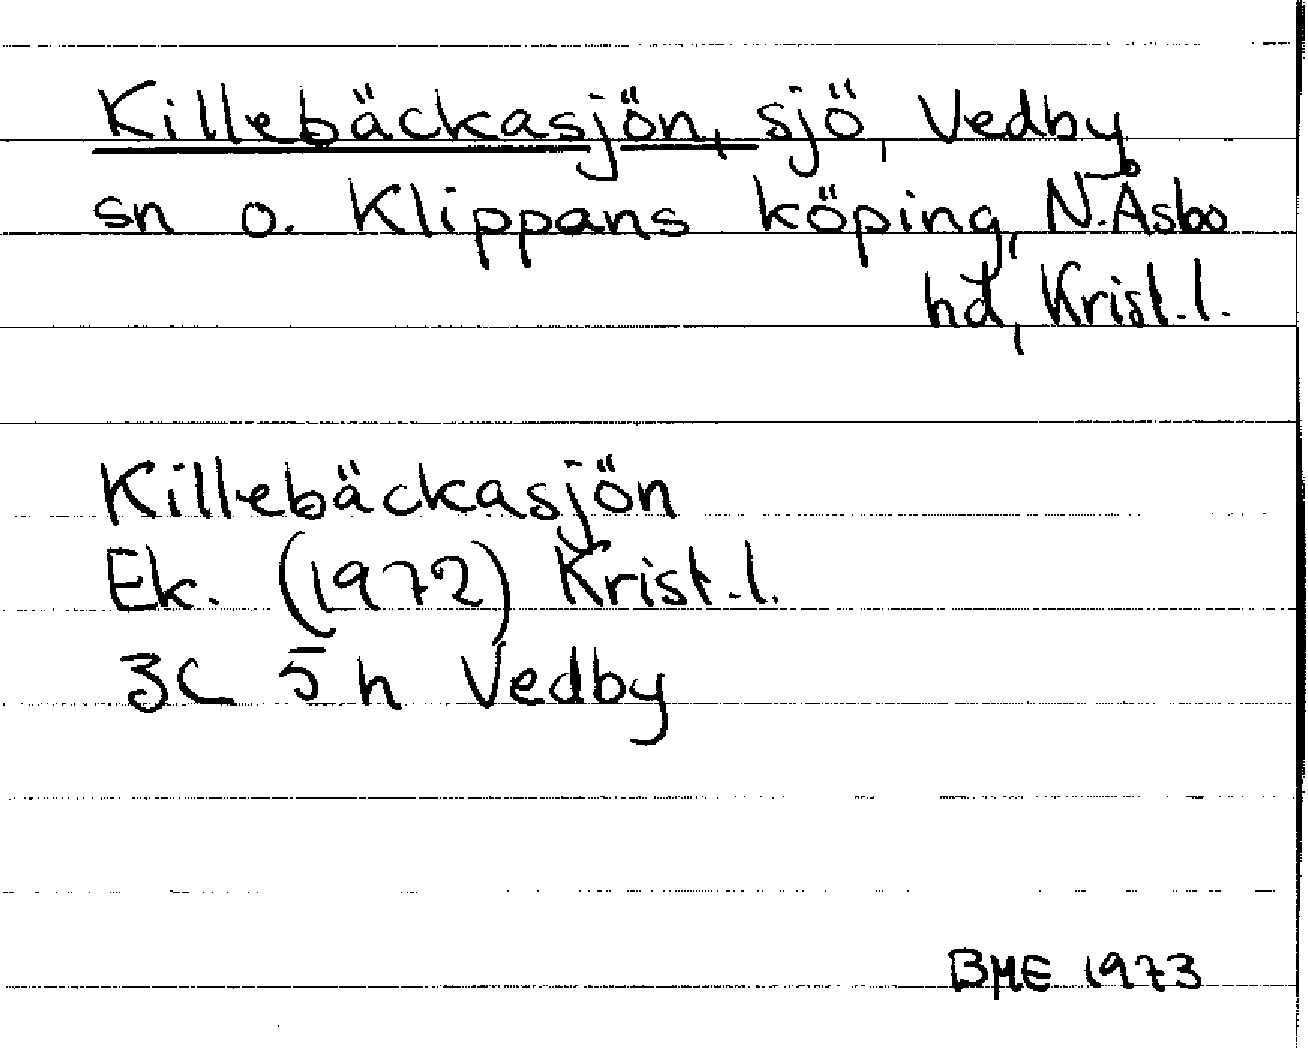 Killebäckasjön, sjö, Vedby
sn o. Klippans köping, N. Åsbo
hd, Krist.l.
Killebäckasjön
Ek. (1972) Krist.l.
3C 5h Vedby
BME 1973